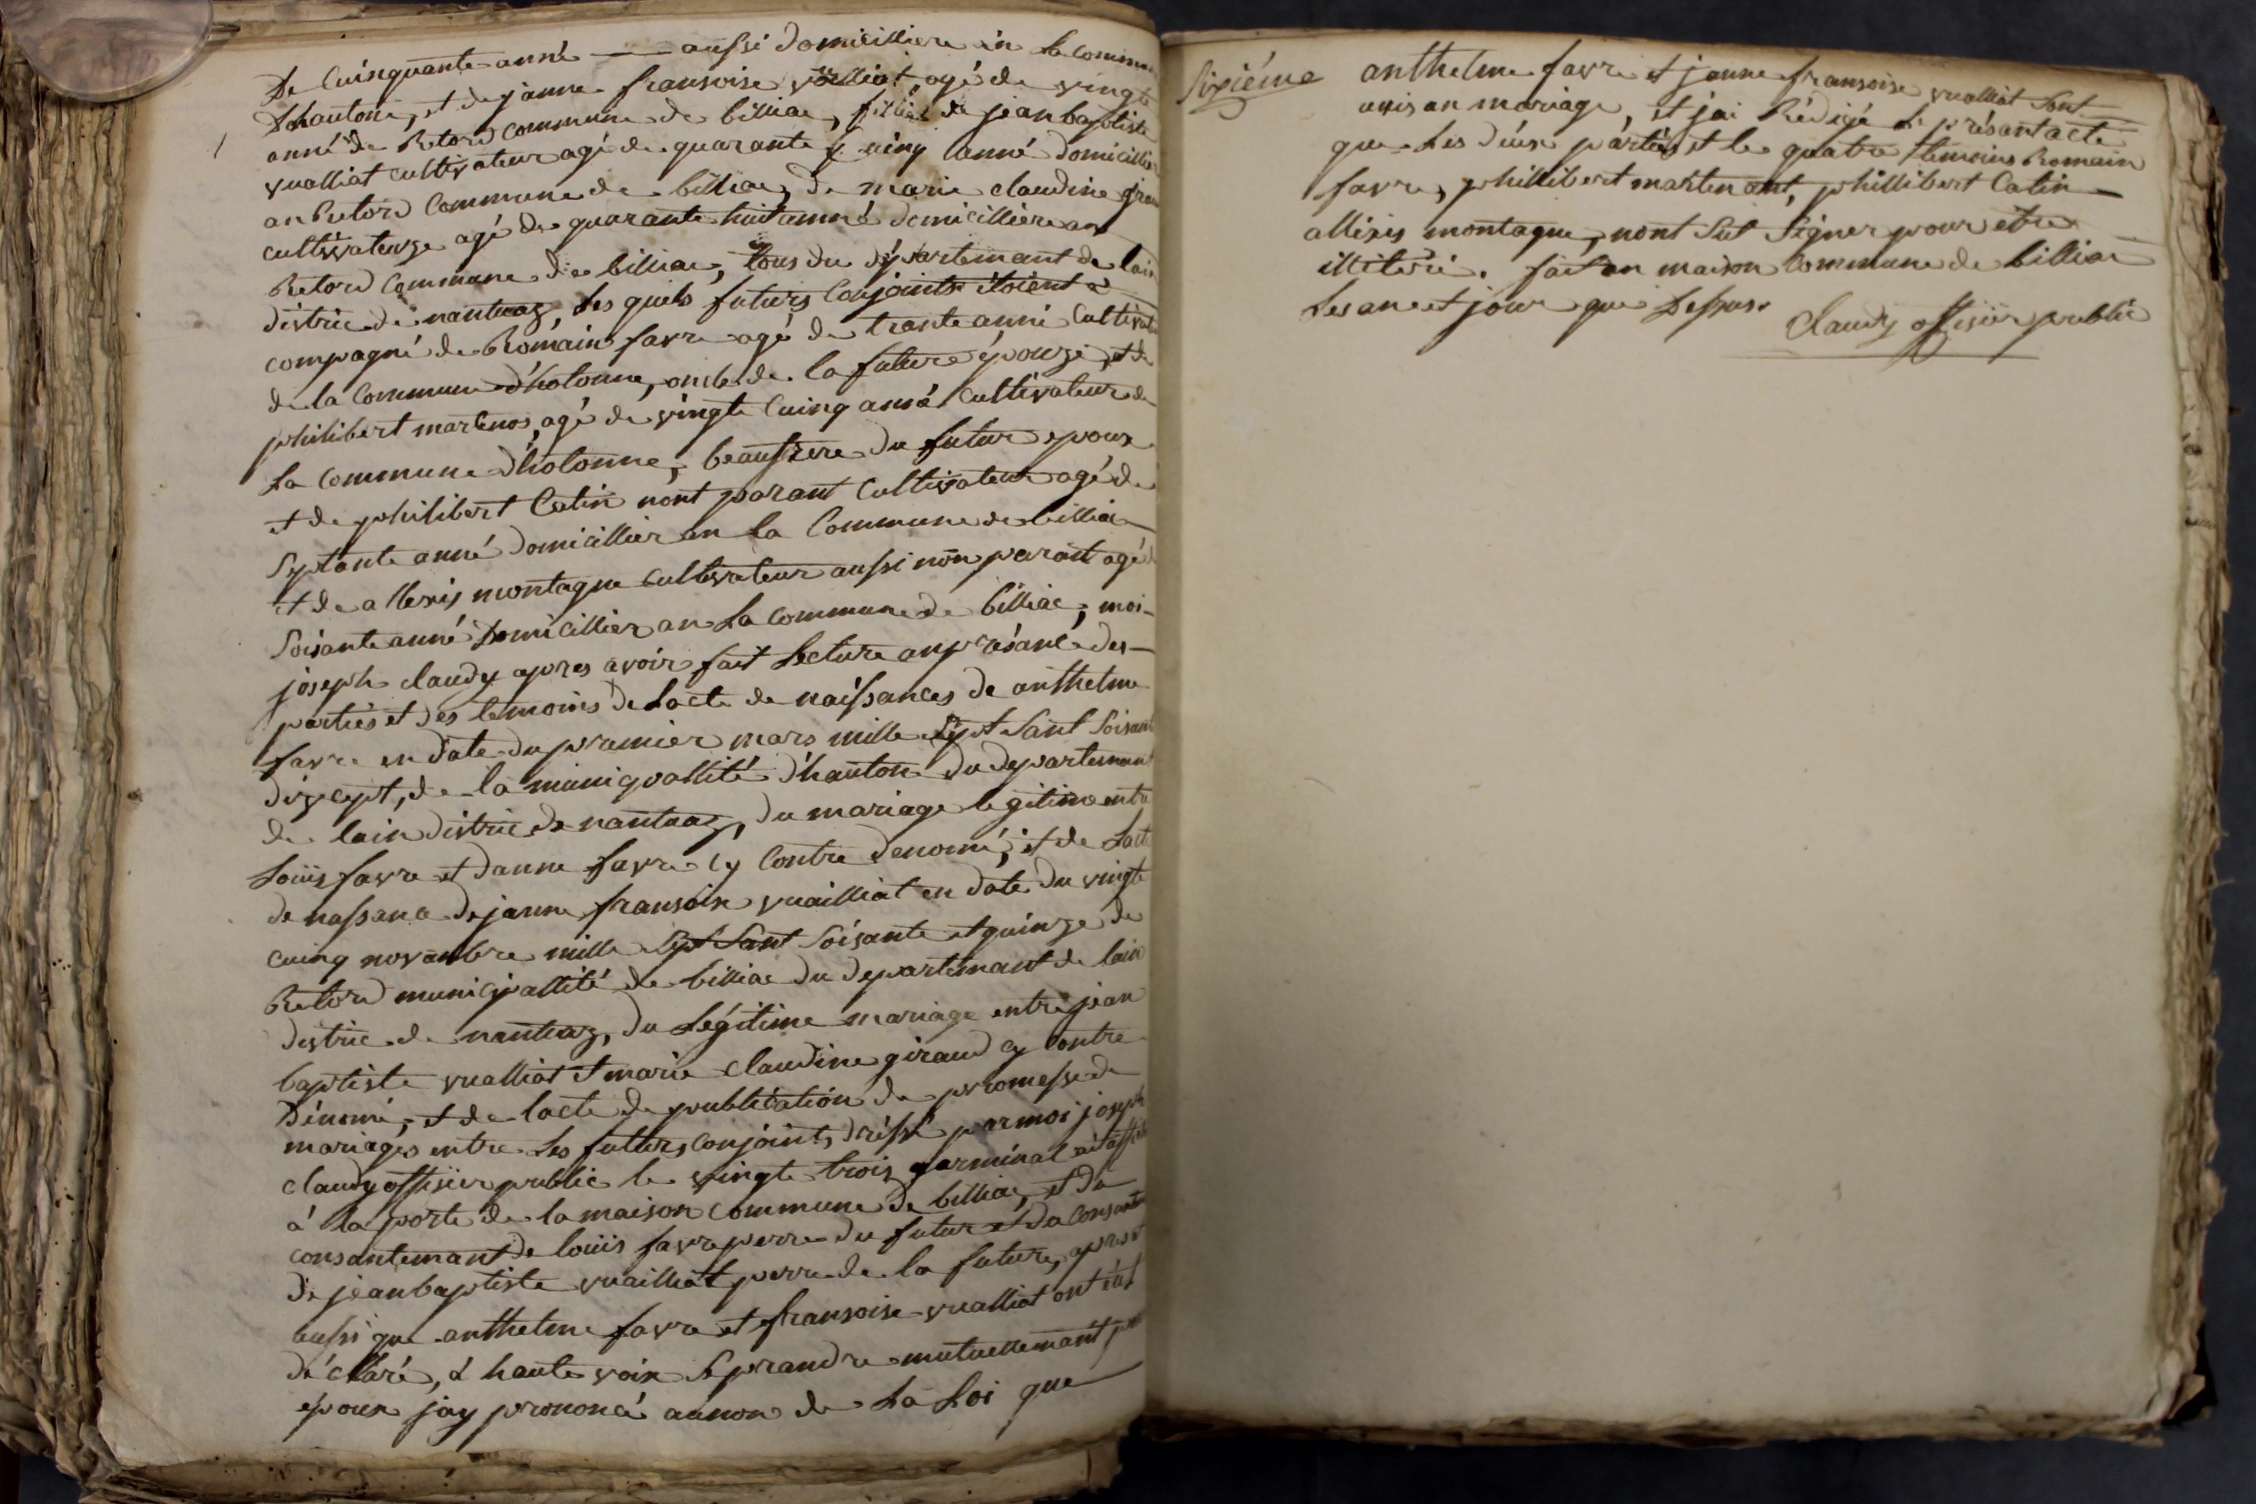 De Cuinquante anné — aussi domicilliere en la commune
Dhautone, et de janne fransoise vualliat, agé de vingte
anné de Retord commune de billiac, fillie de jean baptiste
vualliat cultivateur agé de quarante cuinq anné domicillier
an Retord commune de billiac, de marie claudine
cultivateuze agé de quarante huit anné domicilliere an
Retord commune de billiac, tous du departemant de lain
distric de nantuaz, les quels futurs conjoints étoient a
compagné de Romain favre agé de trante anné cultivateur
de la commune d'hotonne, oncle de la future épouze, et de
philibert martenos, agé de vingte cuinq anné cultivateur de
La commune d'hotonne, beaufrere du futur epoux
et de philibert Catin nont parant cultivateur agé de
Septante anné domicillier an la Commune de billiac
et de allexis montagne cultivateur aussi non parant agé de
Soisante anné domicillier an La commune de billiac, moi
joseph claudy apres avoir fait Lecture an présance des
parties et des temoins de Lacte de naissances de anthelme
favre en date du pramier mars mille sept sant soisante
dizsept, de la municipallité d'hauton du departemant
de lain distric de nantuaz, du mariage legitime entre
Loüis favre et danne favre cy contre denomé, et de Lacte
de nassance de janne fransoise vuailliat en date du vingte
cuinq novanbre mille sept sant soisante et quinze de
Retord municipallité de billiac du departemant de lain
distric de nantuaz, du Légitime mariage entre jean
baptiste vualliat et marie claudine giraud cy contre
Dénomé, et de lacte de publication de promesse de
mariages entre Les futurs conjoints, dréssé par moi joseph
claudy offisier public le vingte trois garminal
à la porte de la maison commune de billiac, et du
consantemant de loüis favre perre du futur et du consante
de jean baptiste vuailliat perre de la future, apres
aussi que anthelme favre et fransoise vualliat ont
déclaré, à haute voix Se prandre mutuellemant pour
epoux jay prononcé aunon de La Loi que
Sixiéme
anthelme favre et janne fransoise vualliat Sont
unis an mariage, et jai Rédigé le présant acte
que Les deux parties et les quatre témoins Romain
favre, phillibert martenant, phillibert Catin
allixis montagne, nont Sut Signer pour etre
illiteré. fait an maison commune de billiac
Les an et jour que Dessus.
Claudy offisier public